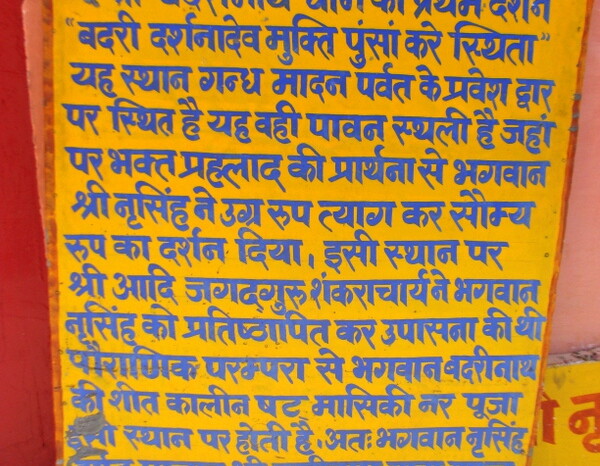 बदरी दर्शनादेव मुक्ति पुंसां करे स्थिता"
यह स्थान गन्ध मादन पर्वत के प्रवेश द्वार
पर स्थित है यह वही पावन स्थली है जहां
पर भक्त प्रहलाद की प्रार्थना से भगवान
श्री नृसिंह ने उग्र रुप त्याग कर सौम्य
रुप का दर्शन दिया, इसी स्थान पर
श्री आदि जगदगुरु शंकराचार्य ने भगवान
नृसिंह को प्रतिष्ठापित कर उपासना की थी
पौराणिक परम्परा से भगवान बदरीनाथ
की शीत कालीन षट मासिकी नर पूजा
स्थान पर होती है, अतः भगवान नृसिंह